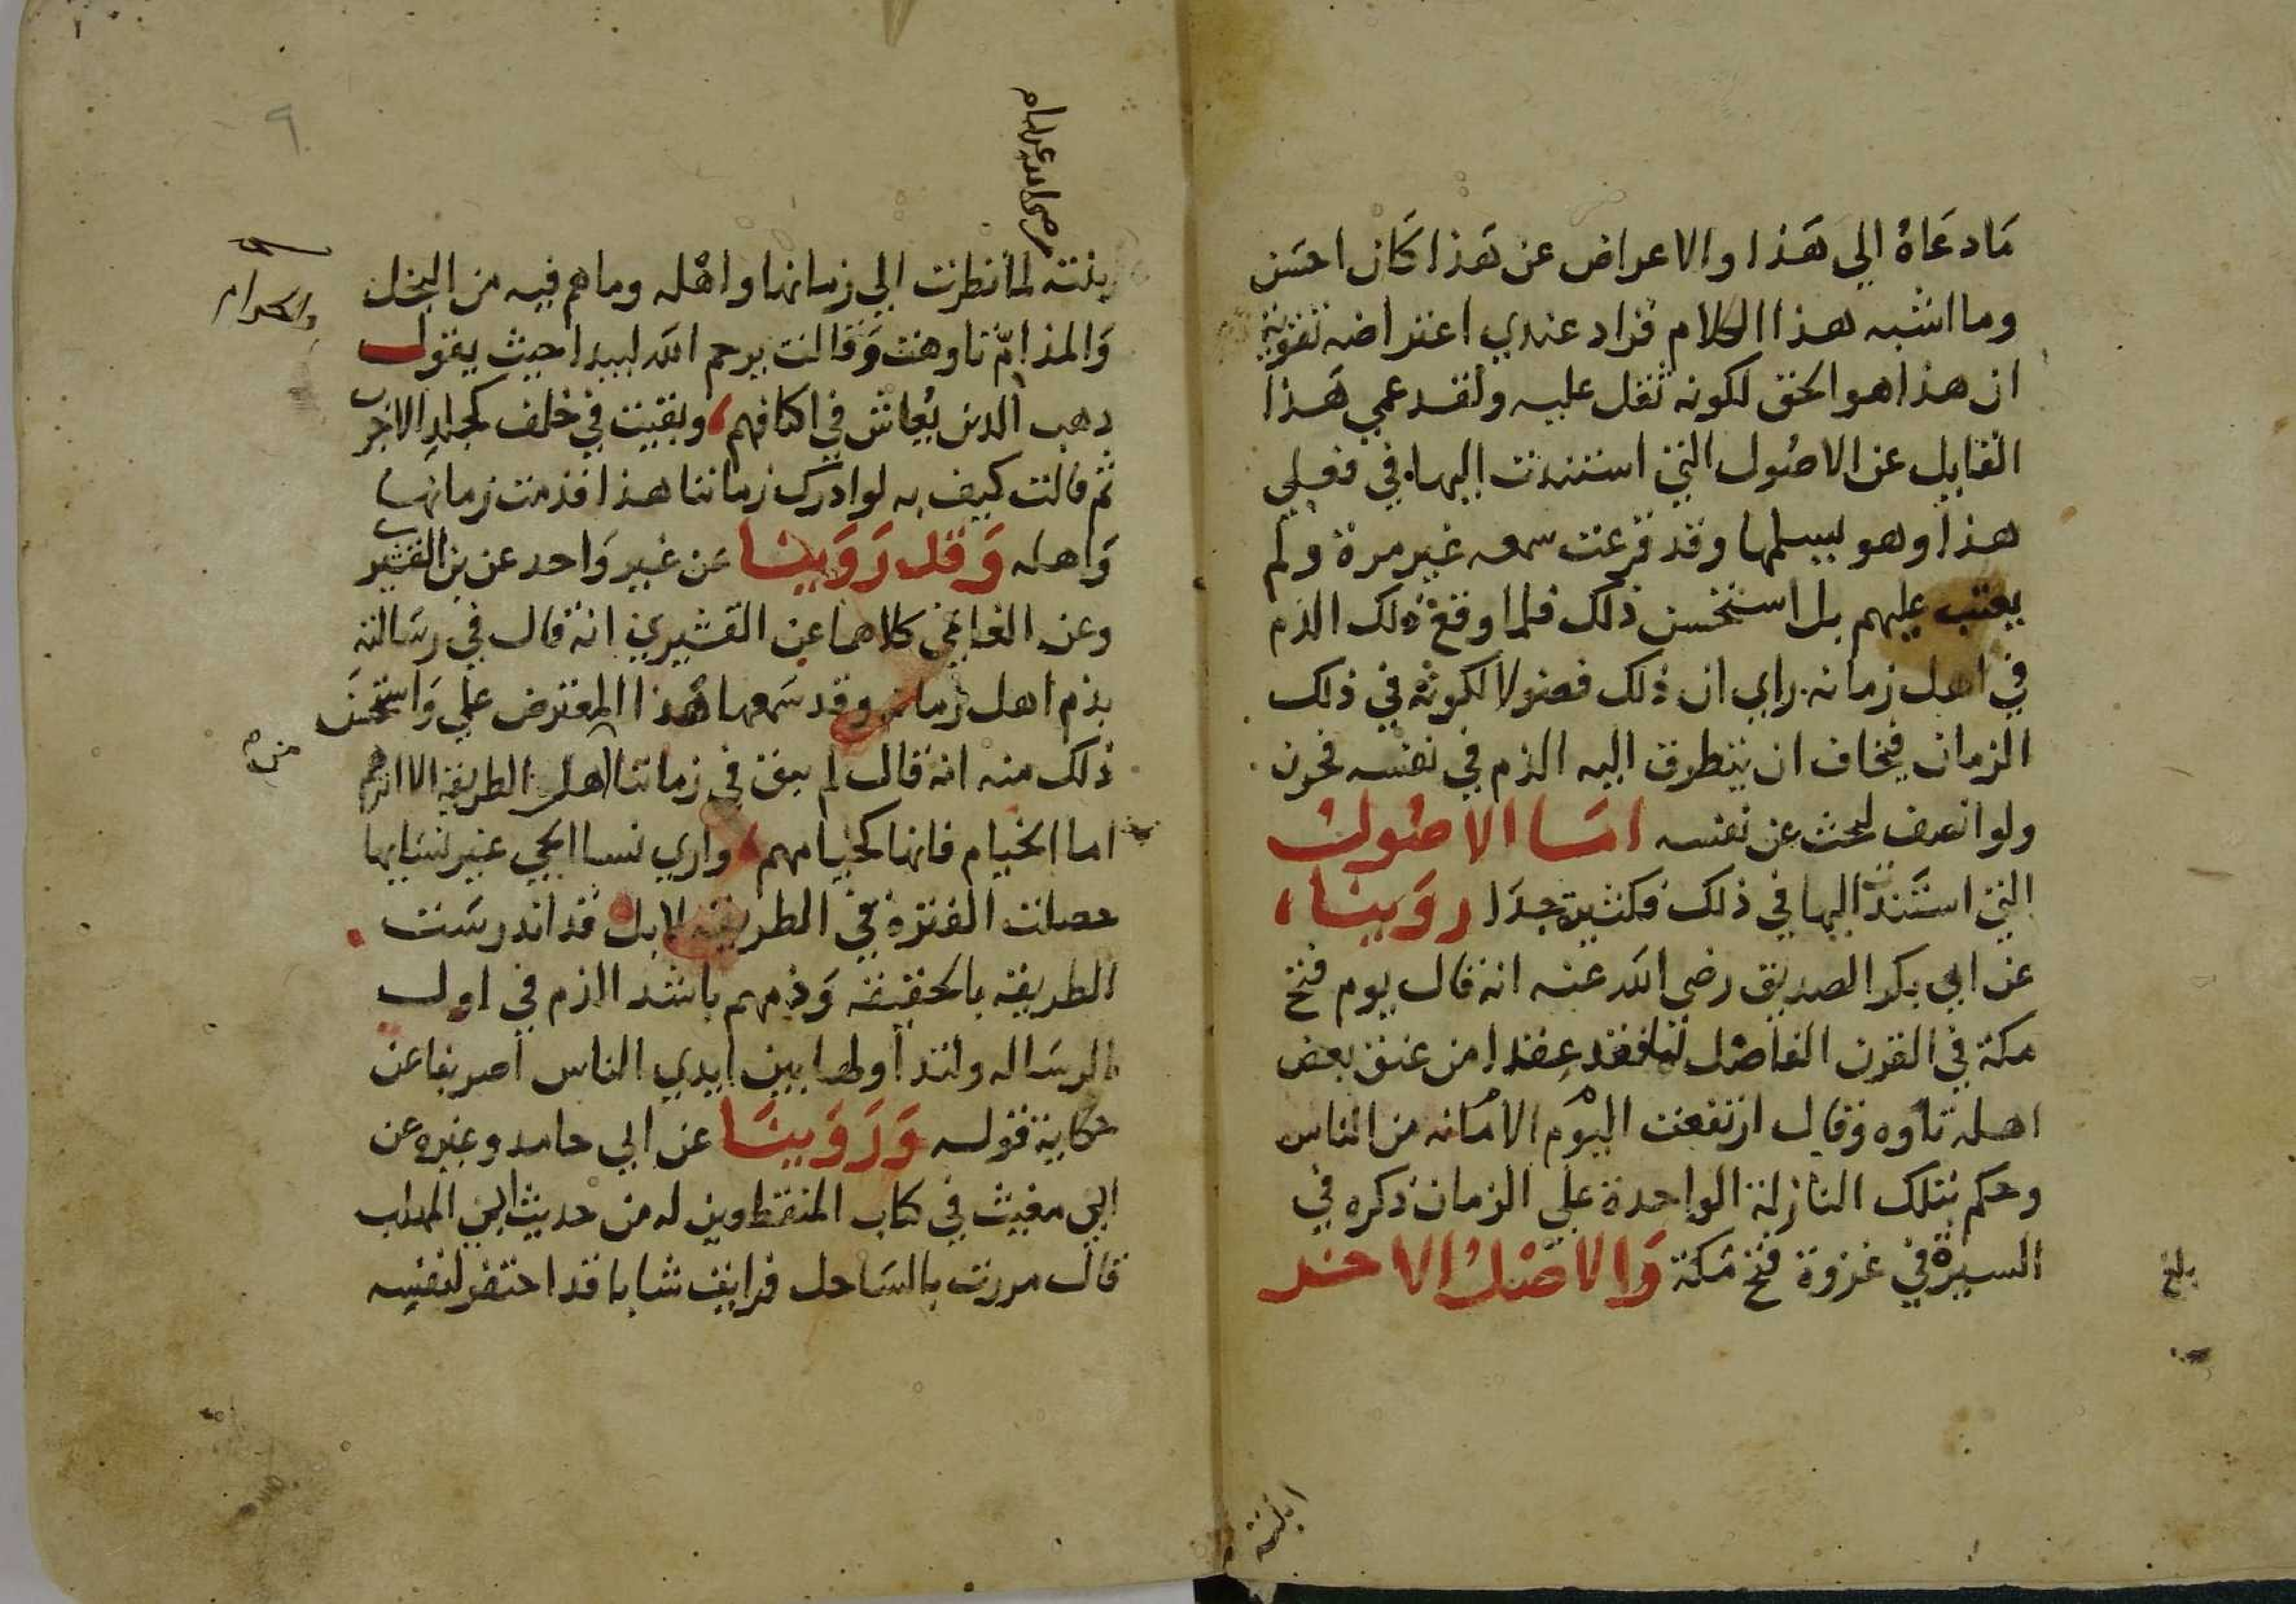 مَا دعَاهُ الي هَذا والاعراض عن هَذا كَان احسَن
وما اشبه هذا الكلام فزاد عندي اعتراضه تقوية
ان هذا هو الحق لكونه ثقل عليه ولقد عمي هَذا
القايل عن الاصُول التي استندت اليها في فعلي
هذا وهو يسلمها وقد قرعت سمعه غير مرة ولم
يعتب عليهم بل استحسن ذلك فلما اوقع ذلك الذم
في اهل زمانه راي ان ذلك فضولا لكونه في ذلك
الزمان فيخاف ان يتطرق اليه الذم في نفسه فحرن
ولو انصف لبحث عن نفسه امَّا الاصُول
التي استَندت اليها في ذلك فكثيرة جدَا روَينا
عن ابي بكر الصديق رضي الله عنه انه قال يوم فتح
مكة في القرن الفاضل لما فقد عقدا من عنق بعض
اهله تاوه وقال ارتفعت اليوم الامانه من الناس
وحكم بتلك النازلة الواحدة علي الزمان ذكره في
السيرة في غزوة فتح مَكة وَالاصْل الاخر
بلغ
ابنته
رضي الله عن ابيها
بنته لما نظرت الي زمانها واهْله وما هم فيه من البخل
والحرام
وَالمذامّ تاوهت وَقالت يرحم الله لبيدا حيث يقول
دهب الدين يُعاش في اكنافهم، وبقيت في خلف كجلدِ الاجرب
ثم قالت كيف به لو ادرك زماننا هذا فذمت زمانها
وَاهله وَقد رَوَينا عَن غير وَاحد عن بن القشيري
وعن الغافقي كلاهما عن القشيري انه قال في رسَالته
بذم اهل زمانه وقد سَمعها هذا المعترض علي وَاستحسَن
ذلك منه انه قال لم يبق في زماننا اهل الطريقة الا اثرهم
اما الخيام فانها كخيامهم، واري نسا الحي غير نسَايها
حصلت الفترة في الطريقه لا بل قد اندرسَت
الطريقه بالحقيقه وَذمهم باشد الذم في اول
الرسَاله ولتداولها بين ايدي الناس اضربنا عن
حكاية قوله وَرَوَينَا عن ابي حامد وغيره عن
ابي مغيث في كتاب المنقطعين له من حديث ابي المهلب
قال مررت بالسَاحل فرايت شابا قد احتفر لنفسه